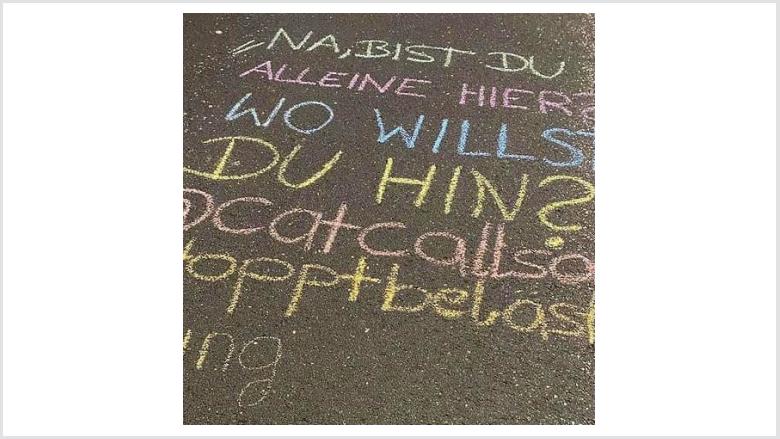 „NA, BIST DU
ALLEINE HIER?
WO WILLST
DU HIN?
@catcallso
toppt belast
ung